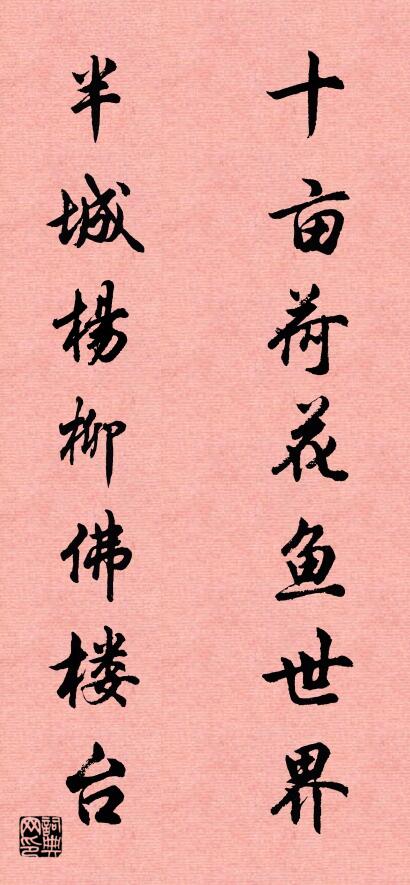 十亩荷花鱼世界
半城楊柳佛楼台
詞典网印